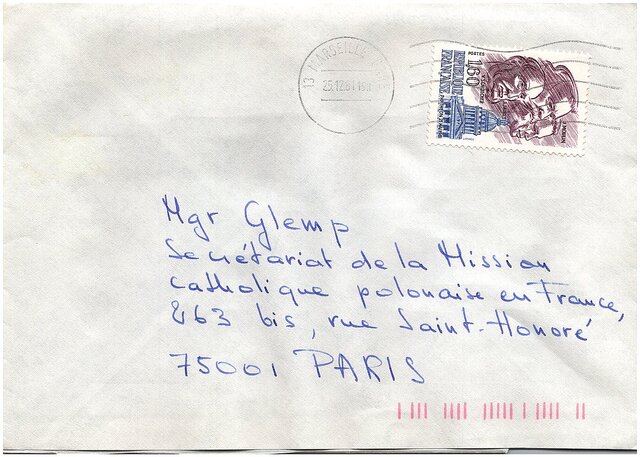 13 MARSEILLE
25.12.81
POSTES
1,60
REPUBLIQUE
FRANÇAISE
J. MOULIN
Mgr Glemp
Secrétariat de la Mission
catholique polonaise en France,
263 bis, rue Saint-Honoré
75001 PARIS